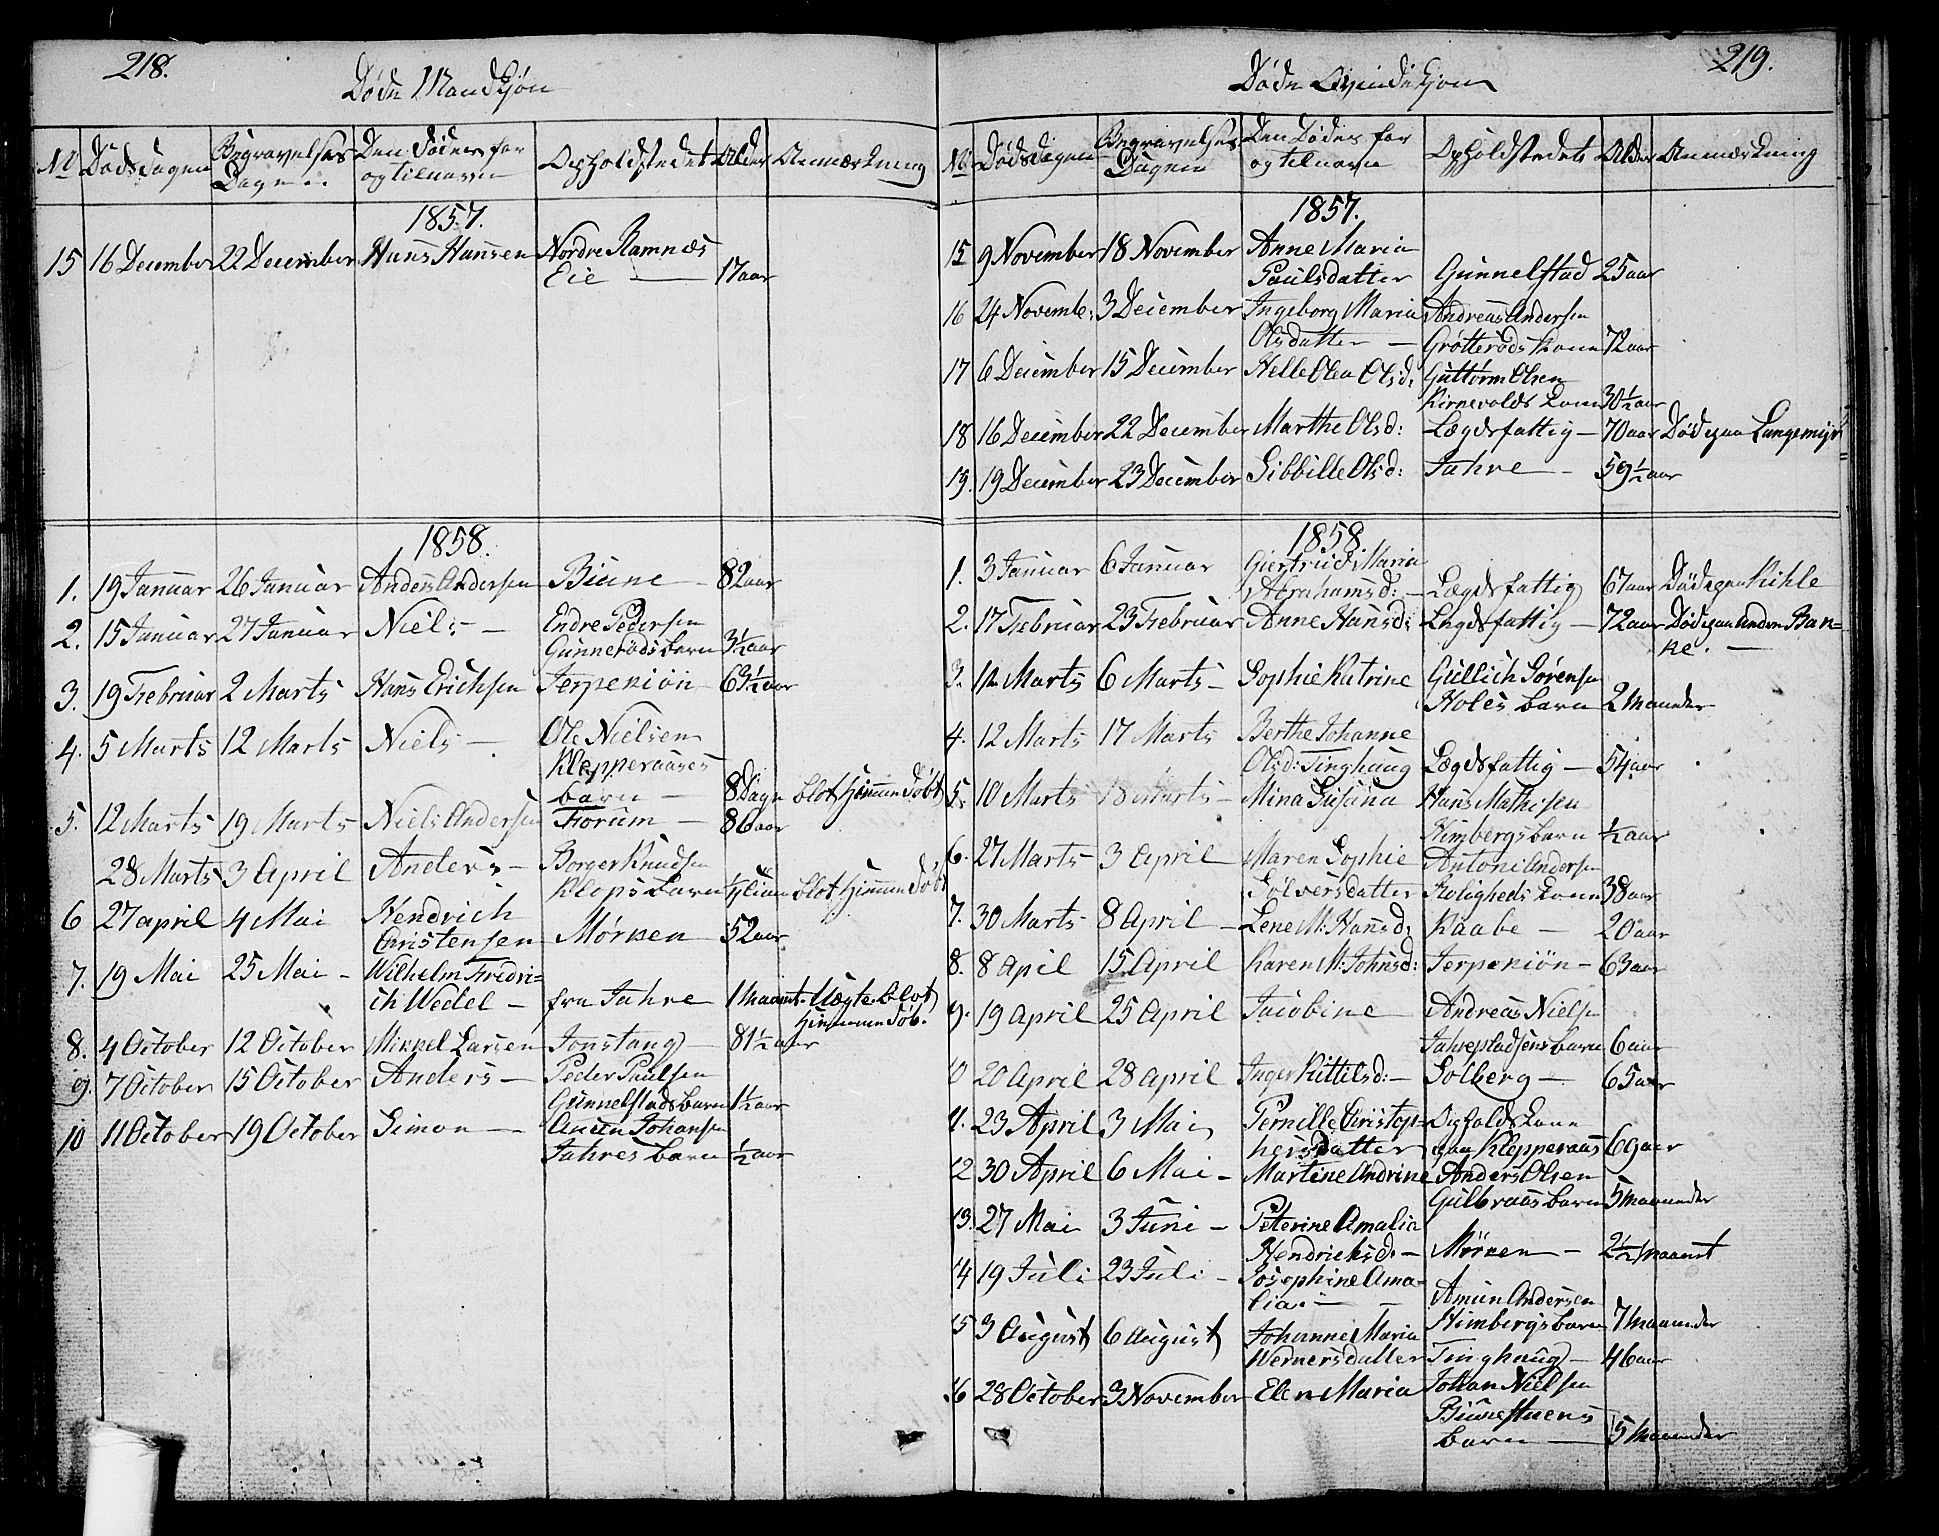 218.
Døde Mandkjøn
No Døds Dagen Begravelses Dagen Den Dødes for og tilnavn Opholdstedet Alder Anmærkning
1857.
15 16 December 22 December Hans Hansen Nordre Ramnæs
Eie — 17 aar
1858.
1. 19 Januar 26 Januar Anders Andersen Biune — 82 aar
2. 15 Januar 27 Januar Niels — Endre Pedersen
Gunnerøds barn 3½ aar
3. 19 Februar 2 Marts Hans Erichsen Jerpekiön 63½ aar
4. 5 Marts 12 Marts Niels — Ole Nielsen
Klepperaases
barn — 8 Dage blot hjemme Døbt
5. 12 Marts 19 Marts Niels Andersen Forum — 86 aar
28 Marts 3 April Anders — Borger Knudsen
Klops barn blot hjemme Døbt
6 27 april 4 Mai Hendrich
Christensen Mørken 52 aar
7. 19 Mai 25 Mai — Wilhelm Fredri=
ich Wedel — fra Jahre 1 maant. Uægte blot
hjemme Døb.
8. 4 October 12 October Mikkel Larsen Jonstang — 81½ aar
9. 7 October 15 October Anders — Peder Paulsen
Gunnelstads barn 1½ aar
10 11 October 19 October Simon — Amun Johansen
Jahres barn ½ aar
219.
Døde Qvindekjøn
No Døds dagen Begravelses Dagen Den Dødes for og tilnavn Opholdstedet Alder Anmærkning
1857.
15 9 November 18 November Anne Maria
Paulsdatter Gunnelstad 25 aar
16 24 Novembr: 3 December Ingeborg Maria Andreas Andersen
Olsdatter — Grøtterøds Kone 72 aar
17 6 December 15 December Helle Olea Olsd: Guttorm Olsen
Kirnevolds Kone 30½ aar
18 16 December 22 December Marthe Olsd: Lægdsfattig — 70 aar Død paa Langemyr
19. 19 December 23 December Sibbille Olsd: Jahre — 59½ aar
1858
1. 3 Januar 6 Januar Giertrud Maria
Abrahamsd: — Lægdsfattig 67 aar Død paa Kihle
2. 17 Februar 23 Februar Anne Hansd: Lægdsfattig — 72 aar Død paa Andre Ban=
ke. —
3. Marts 6 Marts — Sophie Katrine Gullich Sørensen
Holes barn 2 maaneder
4. 12 Marts 17 Marts Berthe Johanne
Olsd: Tinghaug Lægdsfattig — 54 aar
5. 10 Marts 18 Marts — Mina Susana Hans Mathisen
Himbergs barn ½ aar
6. 27 Marts 3 April Maren Sophie Antoni Andersen
Sølversdatter Roligheds Kone 38 aar
7. 30 Marts 8 April — Lene M: Hansd: Raabe — 20 aar
8. 8 Apil 15 April Karen M: Johnsd: Jerpekiön — 63 aar
9. 19 April 25 April Jacobine Andreas Nielsen
Jahrestadsens barn 6 aar
10 20 April 28 april Inger Kittilsd: — Solberg — 65 aar
11. 23 April 3 Mai Pernille Christop=
hersdatter Opholds Kone
paa Klepperaas 69 aar
12 30 April 6 Mai — Martine Andrine Anders Olsen
Gulbraas barn 5 maaneder
13. 27 Mai 3 Juni — Peterine Amalia
Hendrichsd: — Mørken — 2½ maant
14 19 Juli 23 Juli — Josephine Ama=
lia. — Amun Andersen
Himbergs barn 7 maaneder
15 3 August 6 August Johanne Maria
Wernersdatter Tinghaug — 46 aar
16 28 October 3 November Elen Maria Johan Nielsen
Biunestuens
barn — 5 maaneder